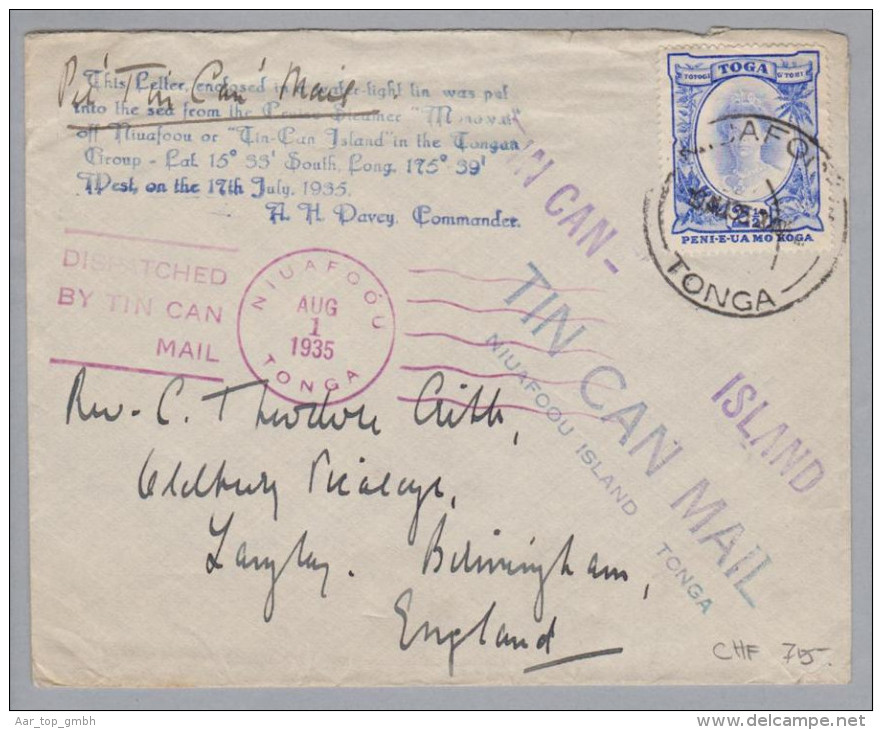 Per "Tin Can" Mail.
This Letter, enclosed in a water-tight tin was put
into the sea from the Cruise Steamer "
off Niuafoou or "Tin-Can Island" in the Tongan
Group - Lat. 15° 33' South, Long. 175° 39'
West, on the 17th July, 1935.
A. H. Davey, Commander.
TOGA
PENI-E-UA MO KOGA
2½
NIUAFOOU
TONGA
DISPATCHED
BY TIN CAN
MAIL
NIUAFOÓU
AUG
1
1935
TONGA
TIN CAN-
ISLAND
TIN CAN MAIL
NIUAFOOU ISLAND
TONGA
Rev. C. Theodore
Oldbury Vicarage,
Langley. Birmingham,
England
CHF 75.-
Aar_top_gmbh
www.delcampe.net